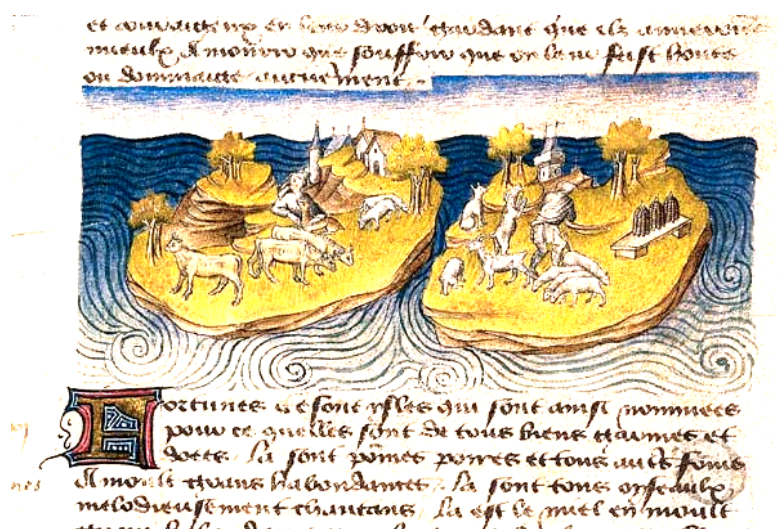 et convoitteux en leur droit gardant que ilz aimeroient
mieulx a mourir que souffrir que on leur feist honte
ou dommaige aucunement.
Fortunes ce sont ysles qui sont ainsi nommees
pour ce quelles sont de tous biens garnies et
dotees. la sont pomes poires et tous autres
a moult grans habondances. la sont tous oyseaulx
melodieusement chantans. la est le miel en moult